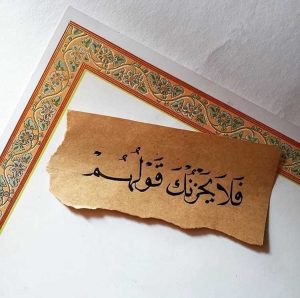 فَلَا يَحْزُنْكَ قَوْلُهُمْ